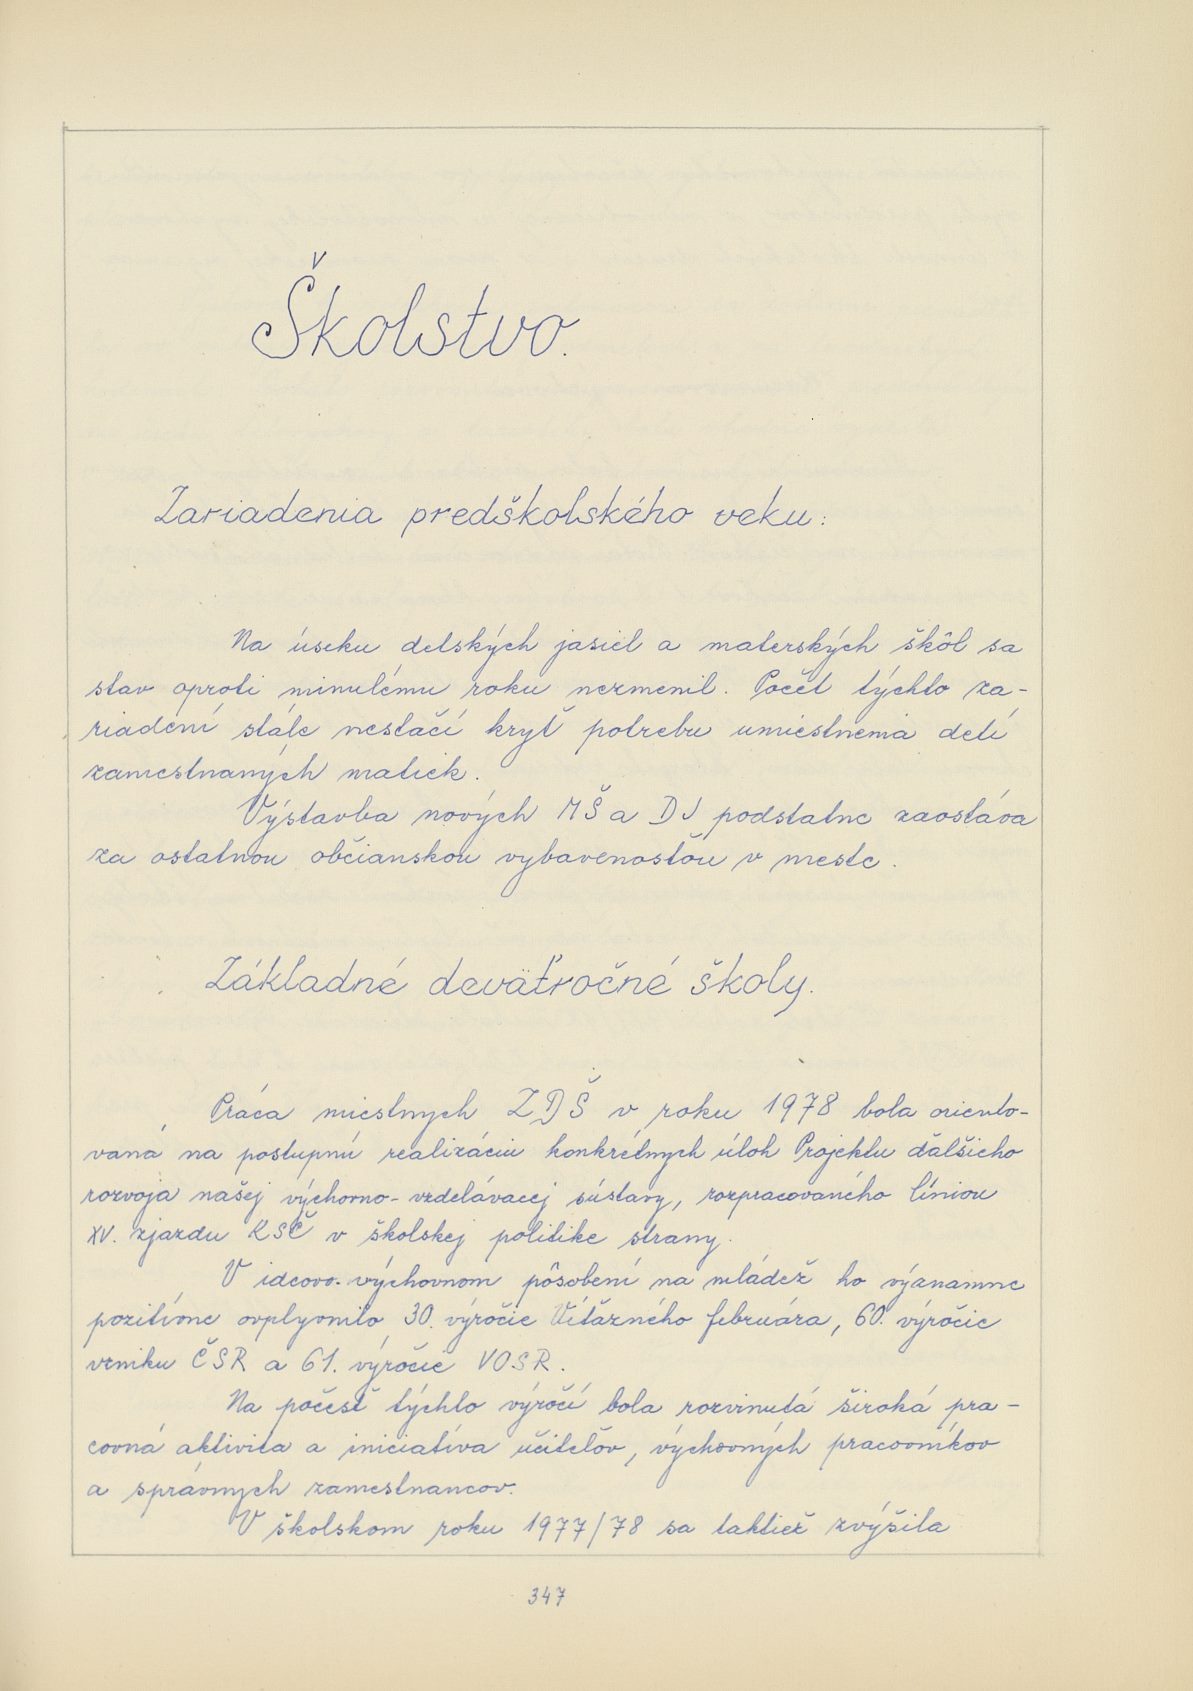 Školstvo.
Zariadenia predškolského veku:
Na úseku detských jasieľ a materských škôl sa
stav oproti minulému roku nezmenil. Počet týchto za-
riadení stále nestačí kryť potrebu umiestnenia detí
zamestnaných matiek.
Výstavba nových MŠ a DJ podstatne zaostáva
za ostatnou občianskou vybavenosťou v meste.
Základné deväťročné školy.
Práca miestnych ZDŠ v roku 1978 bola oriento-
vaná na postupnú realizáciu konkrétnych úloh Projektu ďalšieho
rozvoja našej výchovno-vzdelávacej sústavy, rozpracovaného líniou
XV. zjazdu KSČ v školskej politike strany.
V ideovo-výchovnom pôsobení na mládež ho významne
pozitívne ovplyvnilo 30. výročie Víťazného februára, 60. výročie
vzniku ČSR a 61. výročie VOSR.
Na počesť týchto výročí bola rozvinutá široká pra-
covná aktivita a iniciatíva učiteľov, výchovných pracovníkov
a správnych zamestnancov.
V školskom roku 1977/78 sa taktiež zvýšila
347